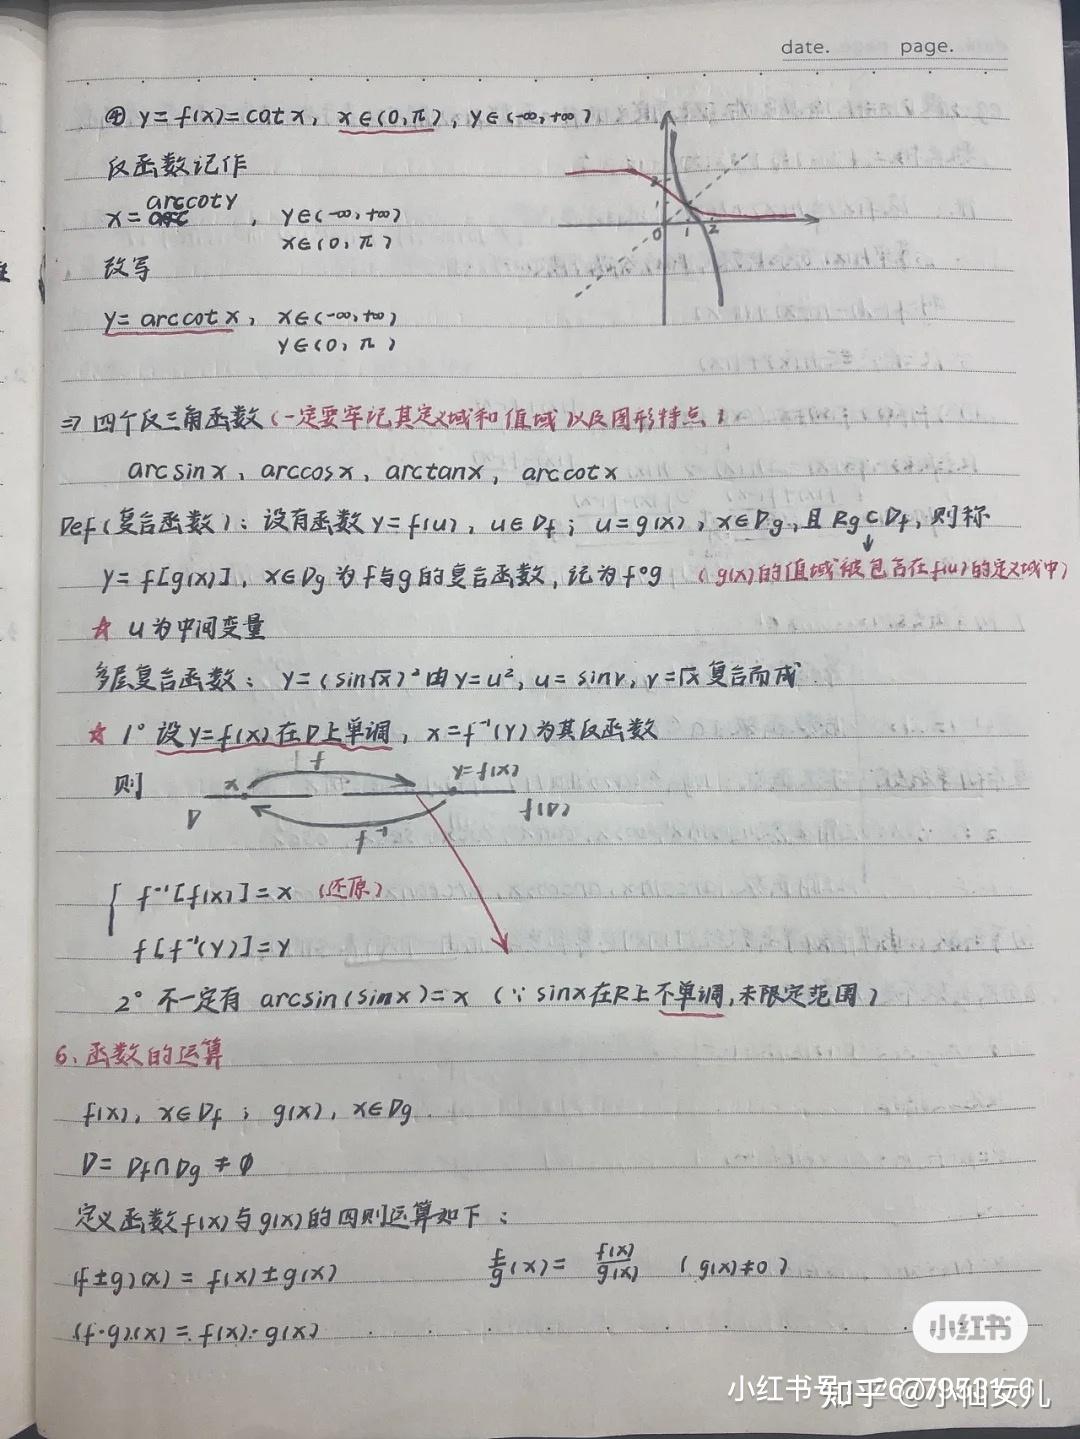 date. page.
④ y = f(x) = cot x, x∈(0, π), y∈(-∞, +∞)
反函数记作
arccoty
x = , y∈(-∞, +∞)
x∈(0, π)
改写
y = arccot x, x∈(-∞, +∞)
y∈(0, π)
2
1
0 1 2
⇒ 四个反三角函数(一定要牢记其定义域和值域以及图形特点)
arcsinx, arccosx, arctanx, arccotx
Def(复合函数): 设有函数 y=f(u), u∈Df; u=g(x), x∈Dg, 且 Rg⊂Df, 则称
y=f[g(x)], x∈Dg 为f与g的复合函数, 记为 f∘g (g(x)的值域被包含在f(u)的定义域中)
☆ u为中间变量
多层复合函数: y=(sin√x)² 由 y=u², u=sinv, v=√x 复合而成.
★ 1° 设y=f(x)在D上单调, x=f⁻¹(y)为其反函数
则 x f y=f(x)
D f⁻¹ f(D)
{ f⁻¹[f(x)]=x (还原)
f[f⁻¹(y)]=y
2° 不一定有 arcsin(sinx)=x (∵ sinx在R上不单调, 未限定范围)
6、函数的运算
f(x), x∈Df; g(x), x∈Dg.
D = Df∩Dg ≠ ∅
定义函数f(x)与g(x)的四则运算如下:
(f±g)(x) = f(x)±g(x) f/g(x) = f(x)/g(x) (g(x)≠0)
(f·g)(x) = f(x)·g(x)
小红书
小红书号:
知乎 @小仙女儿